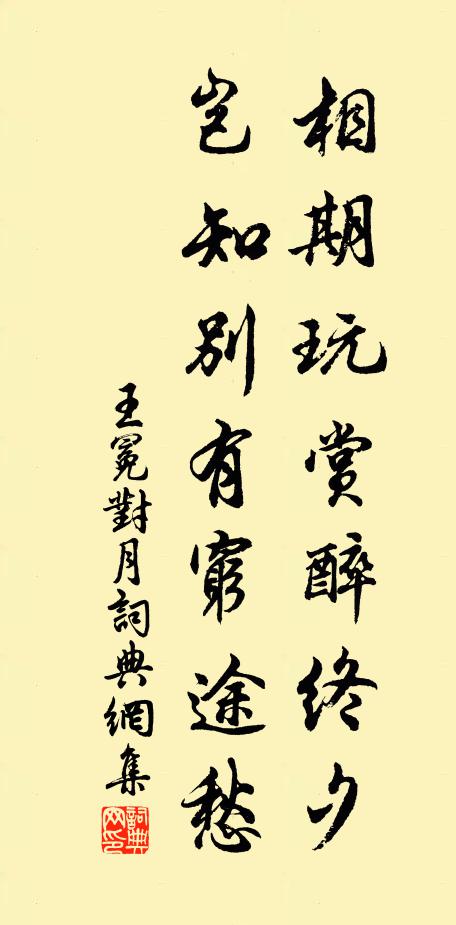 相期玩賞醉終夕
豈知別有窮途愁
王冕對月詞典網集
詞典網印